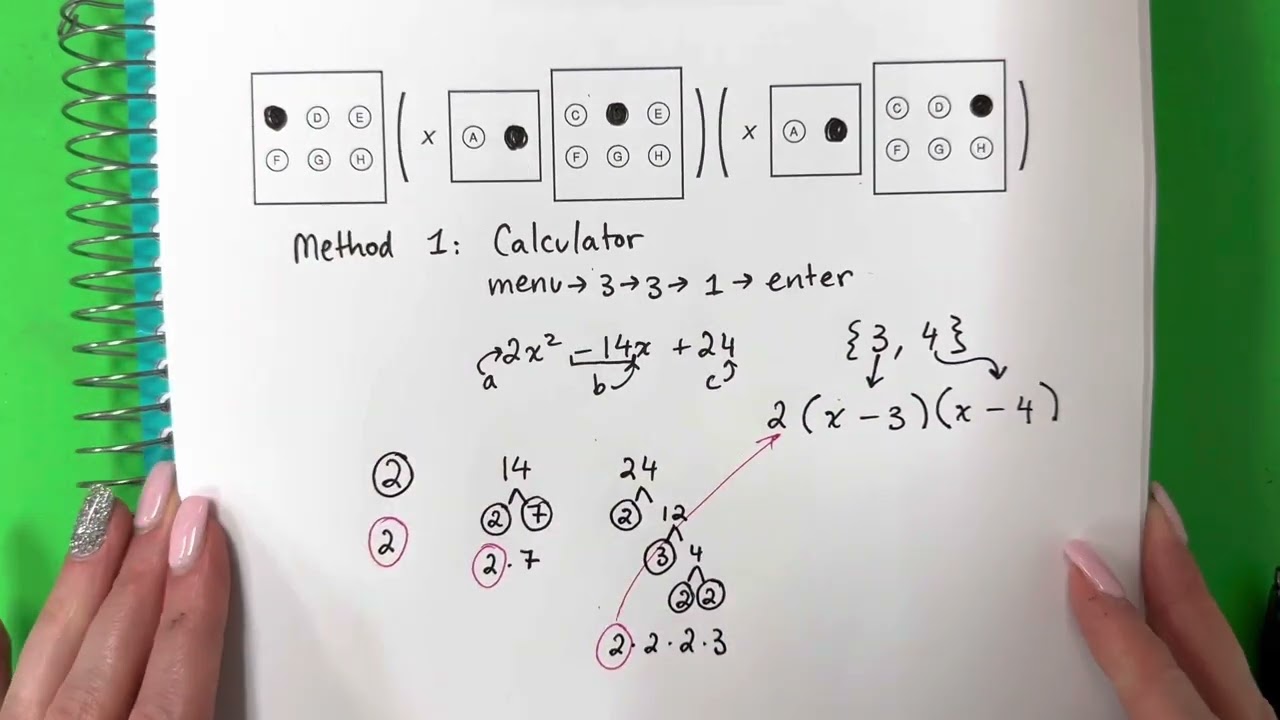 D E ( x A C E ) ( x A C D )
F G H F G H F G H
Method 1: Calculator
menu → 3 → 3 → 1 → enter
2x² - 14x + 24
a b c
{3, 4}
2 (x - 3)(x - 4)
2 14 24
2 7 2 12
2 2 · 7 3 4
2 2
2 · 2 · 2 · 3